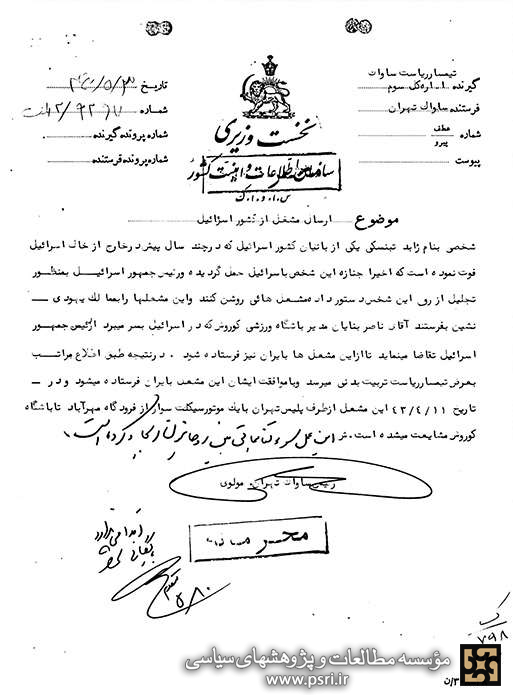 تیمسار ریاست ساواک
گیرنده اداره کل سوم
فرستنده ساواک تهران
شماره عطف
پیرو
پیوست
نخست وزیری
سازمان اطلاعات و امنیت کشور
س.ا.و.ا.ک
تاریخ
شماره
شماره پرونده گیرنده
شماره پرونده فرستنده
موضوع ارسال مشعل از کشور اسرائیل
شخصی بنام ژابد تبنسکی یکی از بانیان کشور اسرائیل که در چند سال پیش در خارج از خاک اسرائیل
فوت نموده است که اخیرا جنازه این شخص باسرائیل حمل گردیده و رئیس جمهور اسرائیل بمنظور
تجلیل از روی این شخص دستور داده مشعل هائی روشن کنند و این مشعلها را بممالک یهودی
نشین بفرستند آقای ناصر بنایان مدیر باشگاه ورزشی کوروش که در اسرائیل بسر میبرد از رئیس جمهور
اسرائیل تقاضا مینماید تا از این مشعل ها بایران نیز فرستاده شود . در نتیجه طبق اطلاع مراتب
بعرض تیمسار ریاست تربیت بدنی میرسد و با موافقت ایشان این مشعل بایران فرستاده میشود و در
تاریخ ۴۳/۴/۱۱ این مشعل از طرف پلیس تهران با یک موتورسیکلت سوار از فرودگاه مهرآباد تا باشگاه
کوروش مشایعت میشده است.
رئیس ساواک تهران. مولوی
محرمانه
۷۹۸
مؤسسه مطالعات و پژوهشهای سیاسی
www.psri.ir